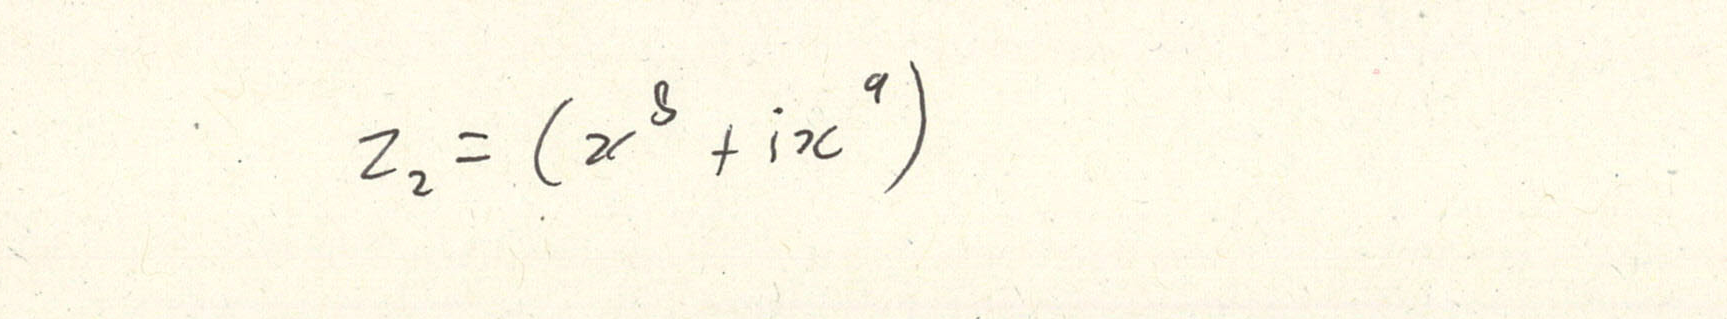 z₂ = (x⁸ + ix⁹)